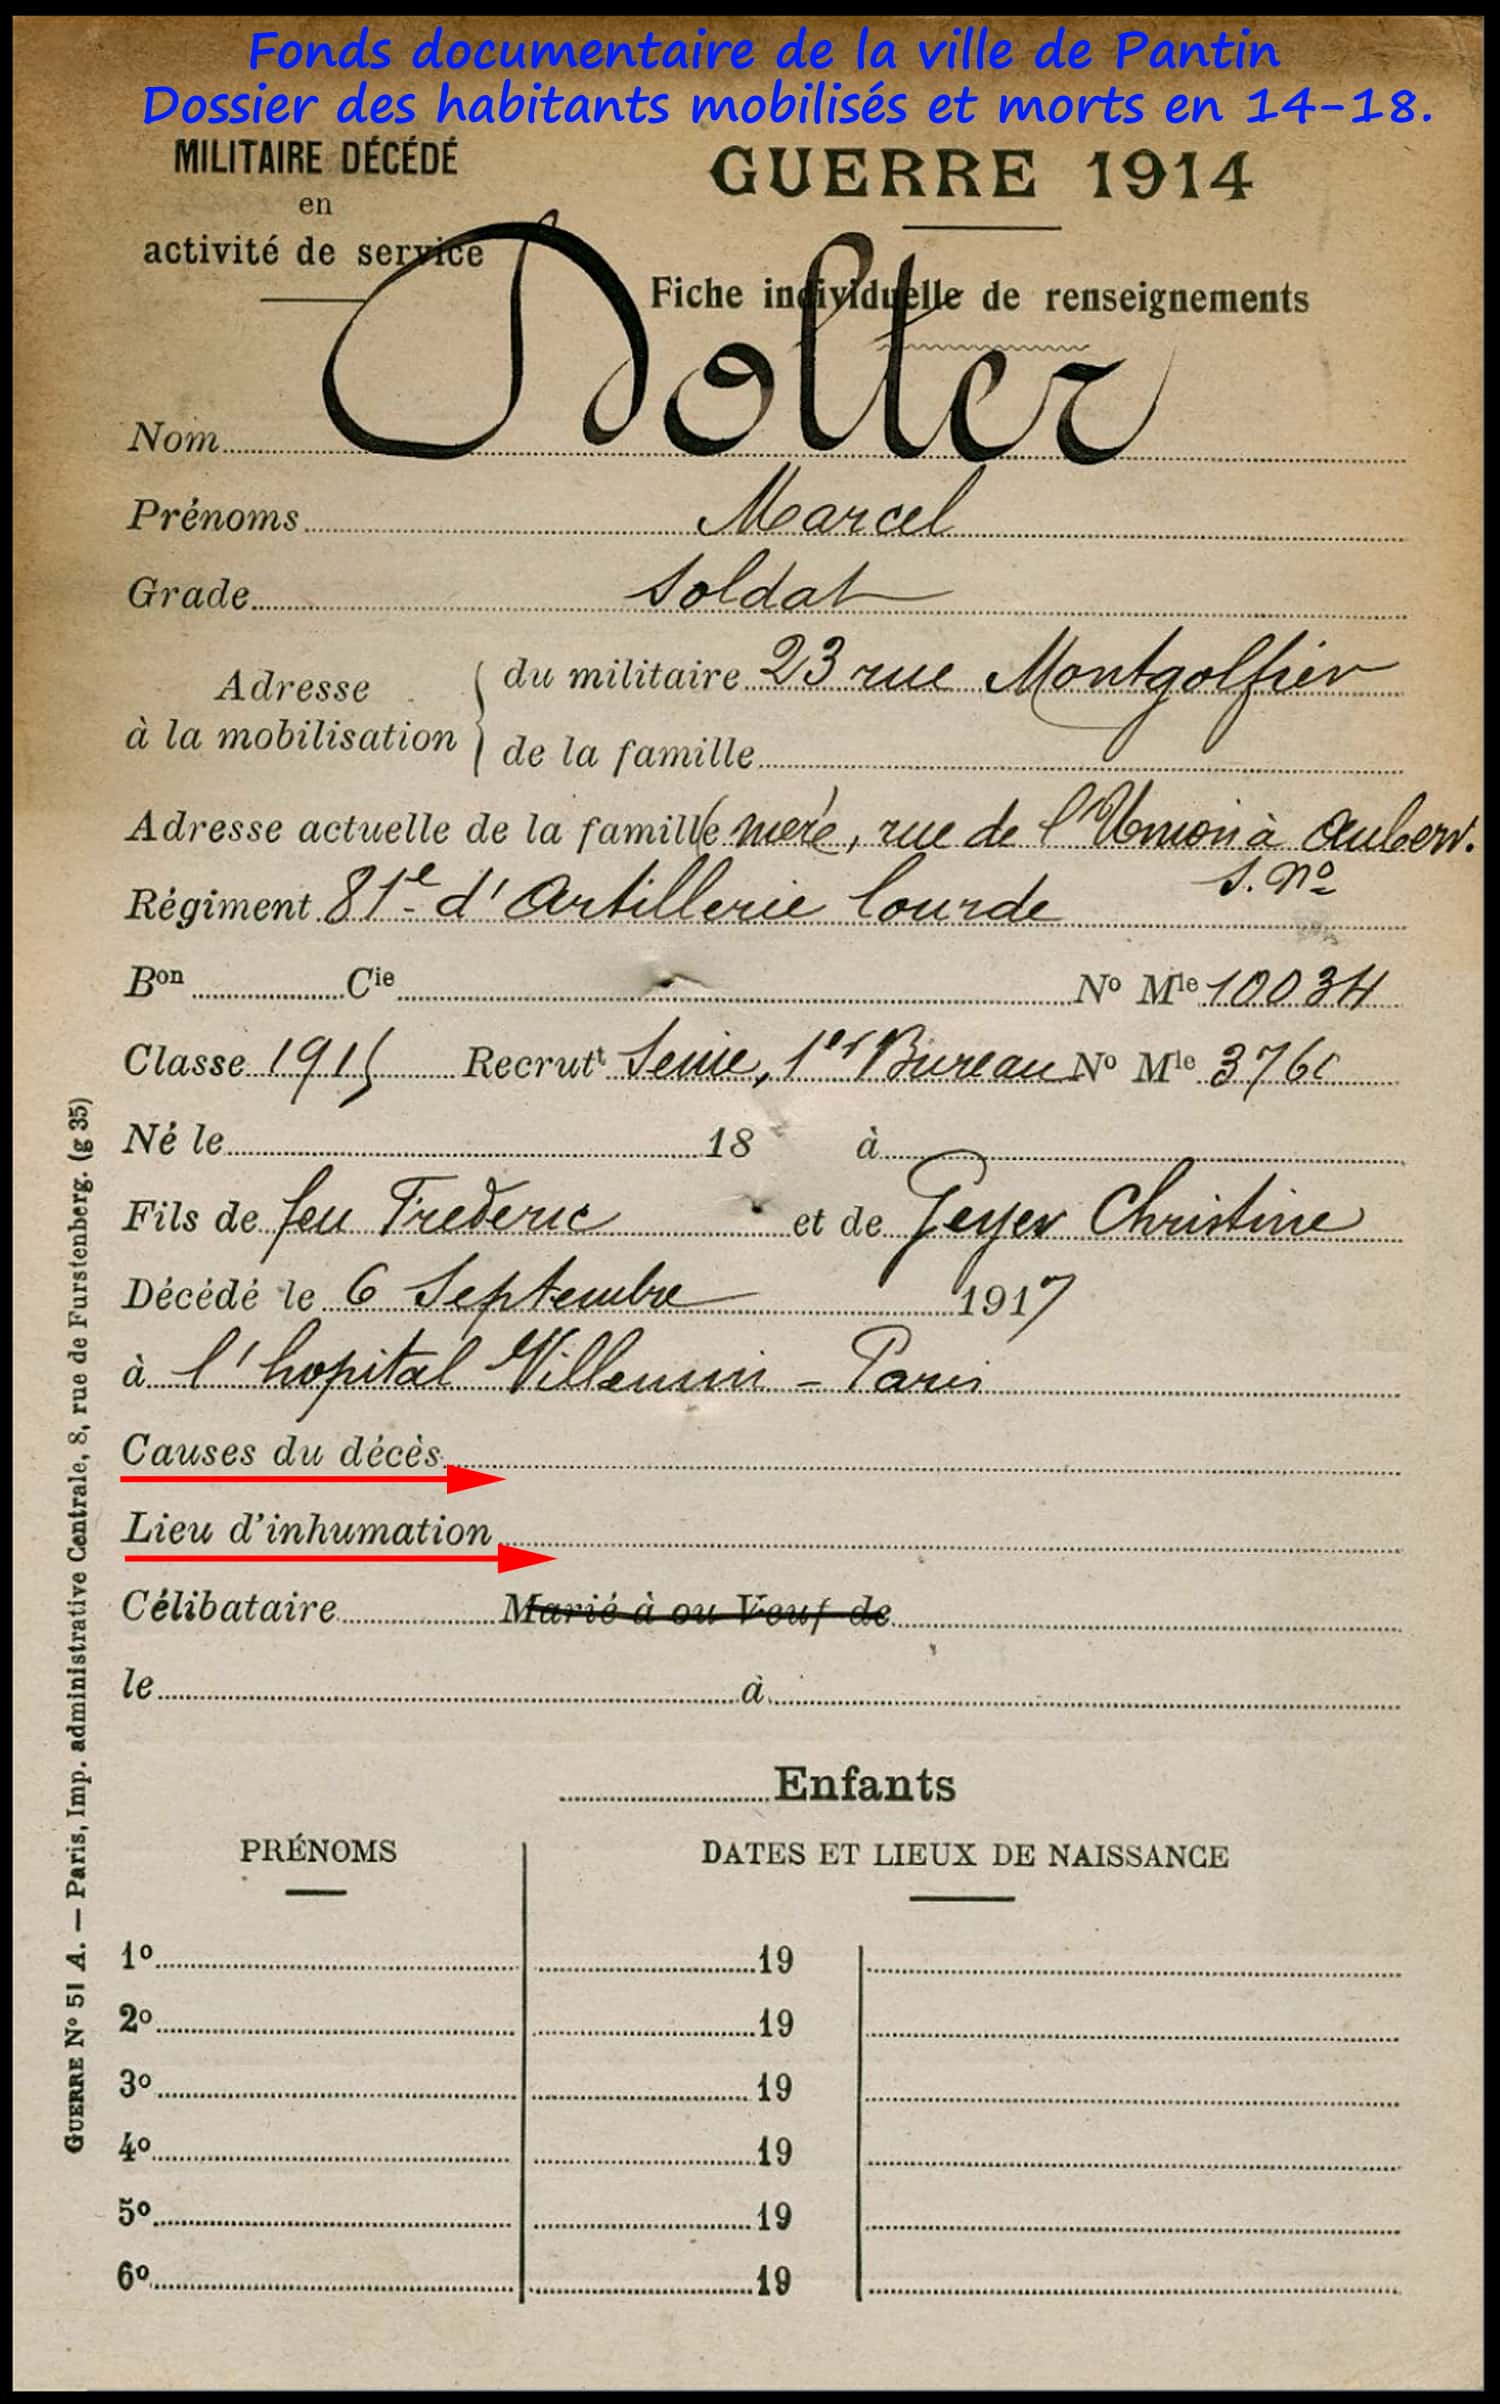 Fonds documentaire de la ville de Pantin
Dossier des habitants mobilisés et morts en 14-18.
MILITAIRE DÉCÉDÉ
en
activité de service
GUERRE 1914
Fiche individuelle de renseignements
Nom Dolter
Prénoms Marcel
Grade Soldat
Adresse à la mobilisation
du militaire 23 rue Montgolfier
de la famille
Adresse actuelle de la famille (mère, rue de l'Union à Auberv.
s. No
Régiment 81e d'Artillerie lourde
Bon Cie No Mle 10034
Classe 1915 Recrutt Seine, 1er Bureau No Mle
Né le 18 à
Fils de feu Frédéric et de Geyer Christine
Décédé le 6 Septembre 1917
à l'hopital Villemin - Paris
Causes du décès
Lieu d'inhumation
Célibataire Marié à ou Veuf de
le à
Enfants
PRÉNOMS DATES ET LIEUX DE NAISSANCE
1o 19
2o 19
3o 19
4o 19
5o 19
6o 19
GUERRE No 51 A. — Paris, Imp. administrative Centrale, 8, rue de Furstenberg. (g 35)